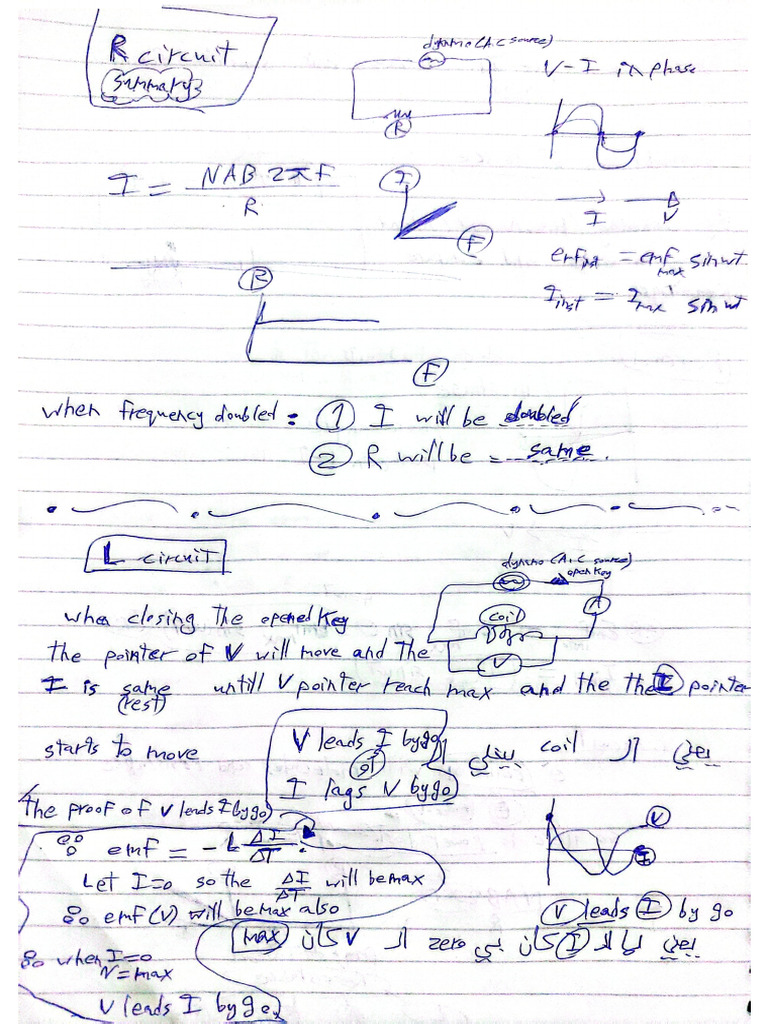 R circuit
summary
dynamo (A.C source)
R
V-I in phase
I = NAB 2πF / R
I
F
I V
emf inst = emf max sin wt
I inst = I max sin wt
R
F
when frequency doubled : ① I will be doubled
② R will be same.
L circuit
dynamo (A.C source)
open key
coil
V
when closing the opened key
the pointer of V will move and the
I is same untill V pointer reach max and the the I pointer
(rest)
starts to move
V leads I by 90
أو
I lags V by 90
يعني ال coil
the proof of V leads I by 90
∴ emf = -L ΔI/ΔT
Let I=0 so the ΔI/ΔT will be max
∴ emf (V) will be max also
∴ when I=0
V=max
V leads I by 90
V
I
V leads I by 90
يعني لما ال I كان ب zero ال V كان max